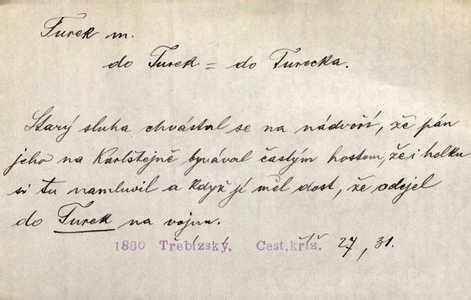 Turek m.
do Turek = do Turecka.
Starý sluha chvástal se na nádvoří, že pán
jeho na Karlštejně býval častým hostem, že i holku
si tu namluvil a když jí měl dost, že odejel
do Turek na vojnu.
1880 Třebízský, Cest.kříž. 27, 31.